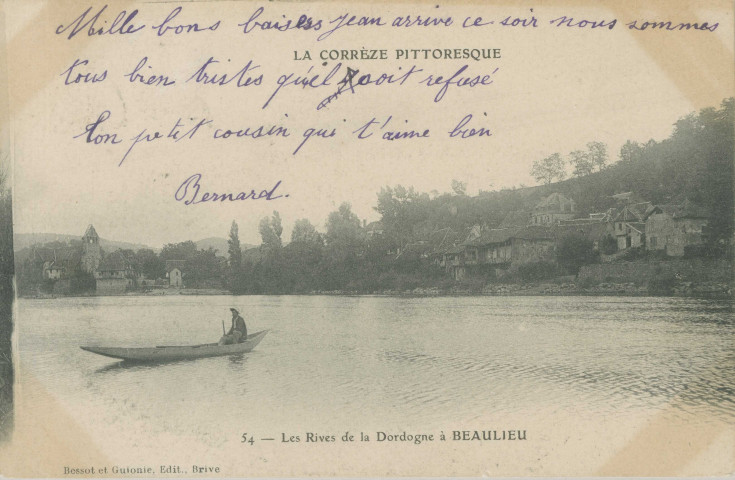 Mille bons baisers Jean arrive ce soir nous sommes
LA CORRÈZE PITTORESQUE
tous bien tristes qu'el soit refusé
Ton petit cousin qui t'aime bien
Bernard.
54 — Les Rives de la Dordogne à BEAULIEU
Bessot et Guionie, Edit., Brive